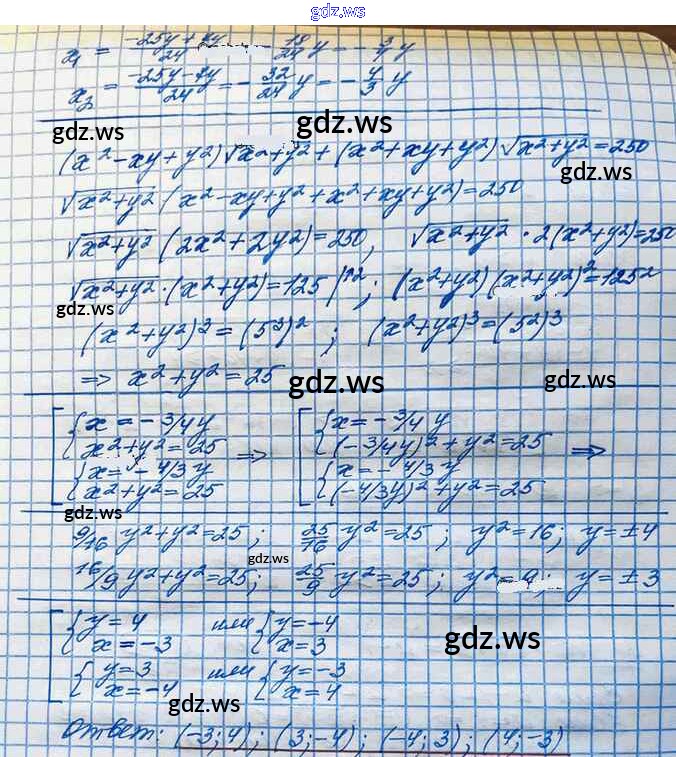 gdz.ws
x₁ = (-25y + 7y)/24 = - 18/24 y = - 3/4 y
x₂ = (-25y - 7y)/24 = - 32/24 y = - 4/3 y
gdz.ws gdz.ws
(x² - xy + y²) √x² + y² + (x² + xy + y²) √x² + y² = 250
gdz.ws
√x² + y² (x² - xy + y² + x² + xy + y²) = 250
√x² + y² (2x² + 2y²) = 250, √x² + y² · 2(x² + y²) = 250
√x² + y² · (x² + y²) = 125 |↑2 ; (x² + y²)(x² + y²)² = 125²
gdz.ws
(x² + y²)³ = (5³)² ; (x² + y²)³ = (5²)³
=> x² + y² = 25 gdz.ws gdz.ws
[ { x = - 3/4 y [ { x = - 3/4 y
x² + y² = 25 => (- 3/4 y)² + y² = 25 =>
{ x = - 4/3 y { x = - 4/3 y
x² + y² = 25 (- 4/3 y)² + y² = 25
gdz.ws
9/16 y² + y² = 25 ; 25/16 y² = 25 ; y² = 16 ; y = ± 4
gdz.ws
16/9 y² + y² = 25 ; 25/9 y² = 25 ; y² = 9 ; y = ± 3
[ { y = 4 или { y = -4
x = -3 x = 3 gdz.ws
{ y = 3 или { y = -3
x = -4 x = 4
gdz.ws
Ответ: (-3; 4) ; (3; -4) ; (-4; 3) ; (4; -3)